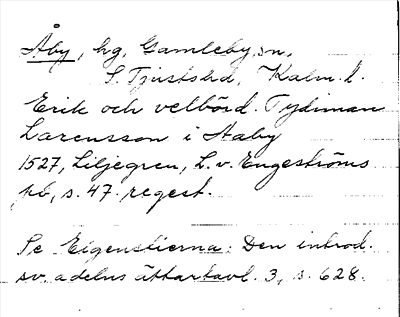 Åby, hg, Gamleby sn,
S. Tjustshd, Kalm. l.
Erik och velbörd. Tydiman
Larensson i Aaby
1527, Liljegren, L. v. Engeströms
pb, s. 47. regest.
Se Elgenstierna: Den introd.
sv. adelns ättartavl. 3, s. 628.